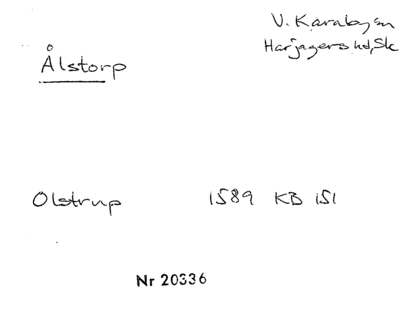 V. Karaby sn
Harjagers hd, Sk
Ålstorp
Olstrup 1589 KB 151
Nr 20336